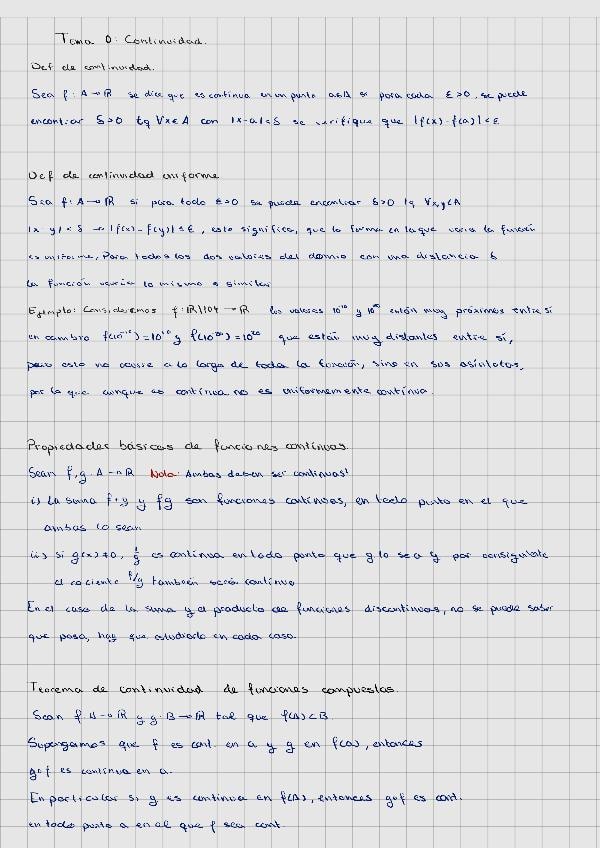 Tema 0: Continuidad.
Def de continuidad.
Sea f: A → ℝ se dice que es continua en un punto a∈A si para cada ε>0, se puede
encontrar δ>0 tq ∀x∈A con |x-a|<δ se verifique que |f(x)-f(a)|<ε
Def de continuidad uniforme
Sea f: A → ℝ si para todo ε>0 se puede encontrar δ>0 tq ∀x,y∈A
|x-y|<δ → |f(x)-f(y)|≤ε, esto significa, que la forma en la que varia la función
es uniforme, Para todos los dos valores del domio con una distancia δ
la función varía lo mismo o similar
Ejemplo: Consideremos f: ℝ\{0} → ℝ los valores y están muy próximos entre sí
en cambio y que están muy distantes entre sí,
pero esto no ocurre a lo largo de toda la función, sino en sus asíntotas,
por lo que aunque es continua no es uniformemente continua.
Propiedades básicas de funciones continuas.
Sean f,g: A → ℝ Nota: Ambas deben ser continuas!
i) La suma f+g y fg son funciones continuas, en todo punto en el que
ambas lo sean
ii) si g(x)≠0, 1/g es continua en todo punto que g lo sea y por consiguiente
el cociente f/g también será continuo
En el caso de la suma y el producto de funciones discontinuas, no se puede saber
que pasa, hay que estudiarlo en cada caso.
Teorema de continuidad de funciones compuestas.
Sean f: A → ℝ y g: B → ℝ tal que f(A)⊂B.
Supongamos que f es cont. en a y g en f(a), entonces
g∘f es continua en a.
En particular si g es continua en f(A), entonces g∘f es cont.
en todo punto a en el que f sea cont.